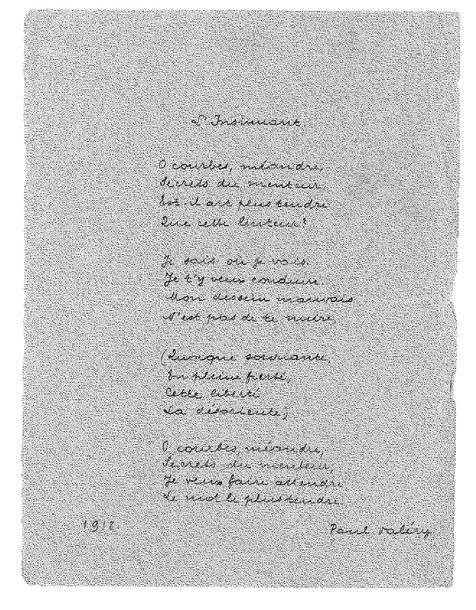 L'Insinuant
O courbes, méandre,
Secrets du menteur
Est-il art plus tendre
Que cette lenteur?
Je sais où je vais.
Je t'y veux conduire.
Mon dessein mauvais
N'est pas de te nuire
(Quoique souriante,
En pleine fierté,
Cette liberté
La désoriente)
O courbes, méandre,
Secrets du menteur,
Je veux faire attendre
Le mot le plus tendre.
1912
Paul Valéry